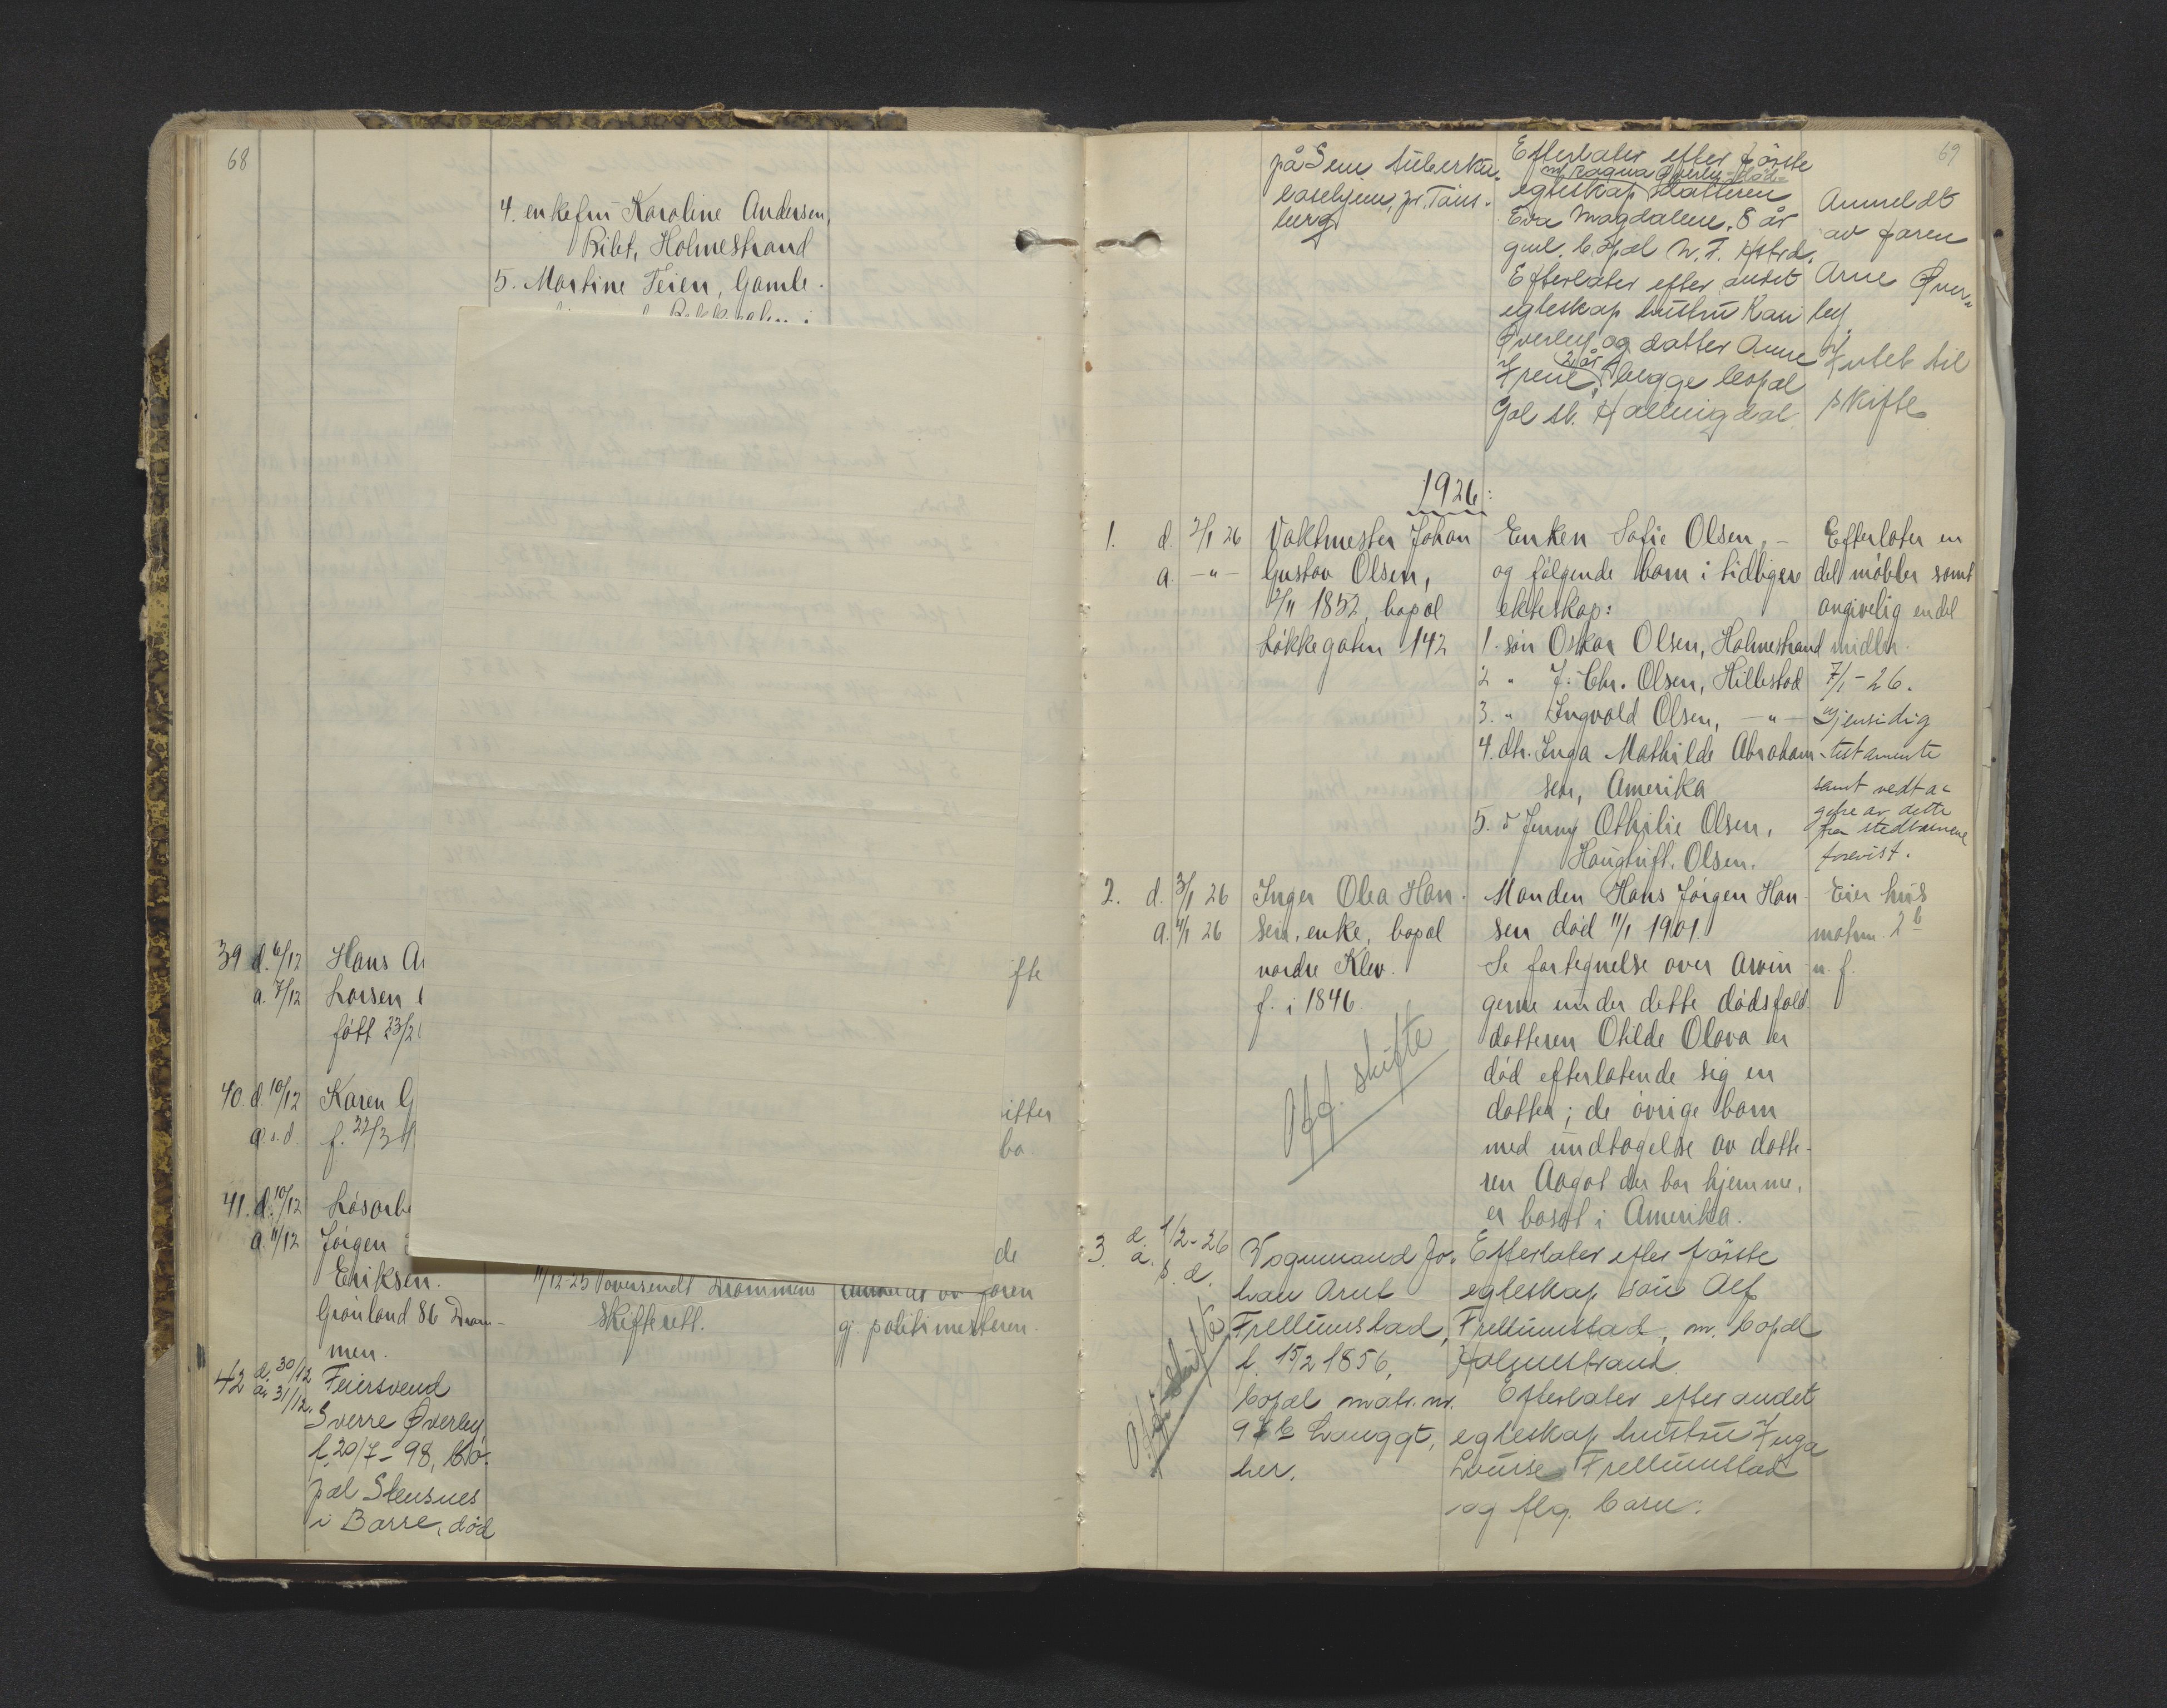 68
4. enkefru Karoline Andersen,
Bibt, Holmestrand
5. Martine Feien, Gamle-
39 d. 6/12 Hans A
a. 7/12 Larsen
født 23/2
ifte
40. d. 10/12 Karen G
a. s. d. f. 22/3
ifter
bo.
41. d. 10/12 Løsarbe
a. 11/12 Jørgen
Eriksen.
Grønland 86 Dram-
men.
11/12-25 oversendt Drammens
skifterett.
de
anmeldt av faren
gj. politimesteren.
42 d. 30/12 Feiersvend
a. 31/12. Sverre Øverley,
f. 20/7-98, bo-
pæl Stensnes
i Borre, død
69
på Sem tuberku-
losehjem, pr. Tøns-
berg
Efterlater efter første
m/ Ragna Øverley
egteskap datteren
Eva Magdalene, 8 år
gml. bopæl N. F. Hstrd.
Efterlater efter andet
egteskap hustru Kari
Øverley og datter Anne
Irene, 2 år, begge bopæl
Gol st. Hallingdal
Anmeldt
av faren
Arne Øver-
ley.
Utlet til
skifte
1926:
1. d. 2/1 26 Vaktmester Johan
a. -"- Gustav Olsen,
2/11 1852, bopæl
Løkkegaten 142
Enken Sofie Olsen, -
og følgende barn i tidligere
ekteskap:
1. søn Oskar Olsen, Holmestrand
2 " J. Chr. Olsen, Hillestad
3. " Ingvald Olsen, -"-
4. dtr. Inga Mathilde Abraham-
sen, Amerika
5. d Jenny Othilie Olsen,
Haugtuft. Olsen.
Efterlater en
del møbler samt
angivelig endel
midler.
7/1-26.
Gjensidig
testamente
samt vedta-
gelse av dette
fra stedbarnene
forevist.
2. d. 3/1 26 Inger Olea Han-
a. 4/1 26 sen, enke, bopæl
nordre Klev.
f. i 1846.
Manden Hans Jørgen Han-
sen død 11/1 1901.
Se fortegnelse over arvin-
gerne under dette dødsfald.
datteren Otilde Olava er
død efterlatende sig en
datter; de øvrige barn
med undtagelse av datte-
ren Aagot der bor hjemme,
er bosat i Amerika.
Eier hus
matrn. 2b
n. f.
Off. skifte
3. d. 1/2-26 Vognmand Jo-
a. s. d. han Arnt
Frellumstad,
f. 15/2 1856,
bopæl matr. nr.
97b Langgt,
her.
Off. skifte
Efterlater efter første
egteskap søn Alf
Frellumstad, m. bopæl
Holmestrand.
Efterlater efter andet
egteskap hustru Inga
Lovise Frellumstad
og flg. barn: